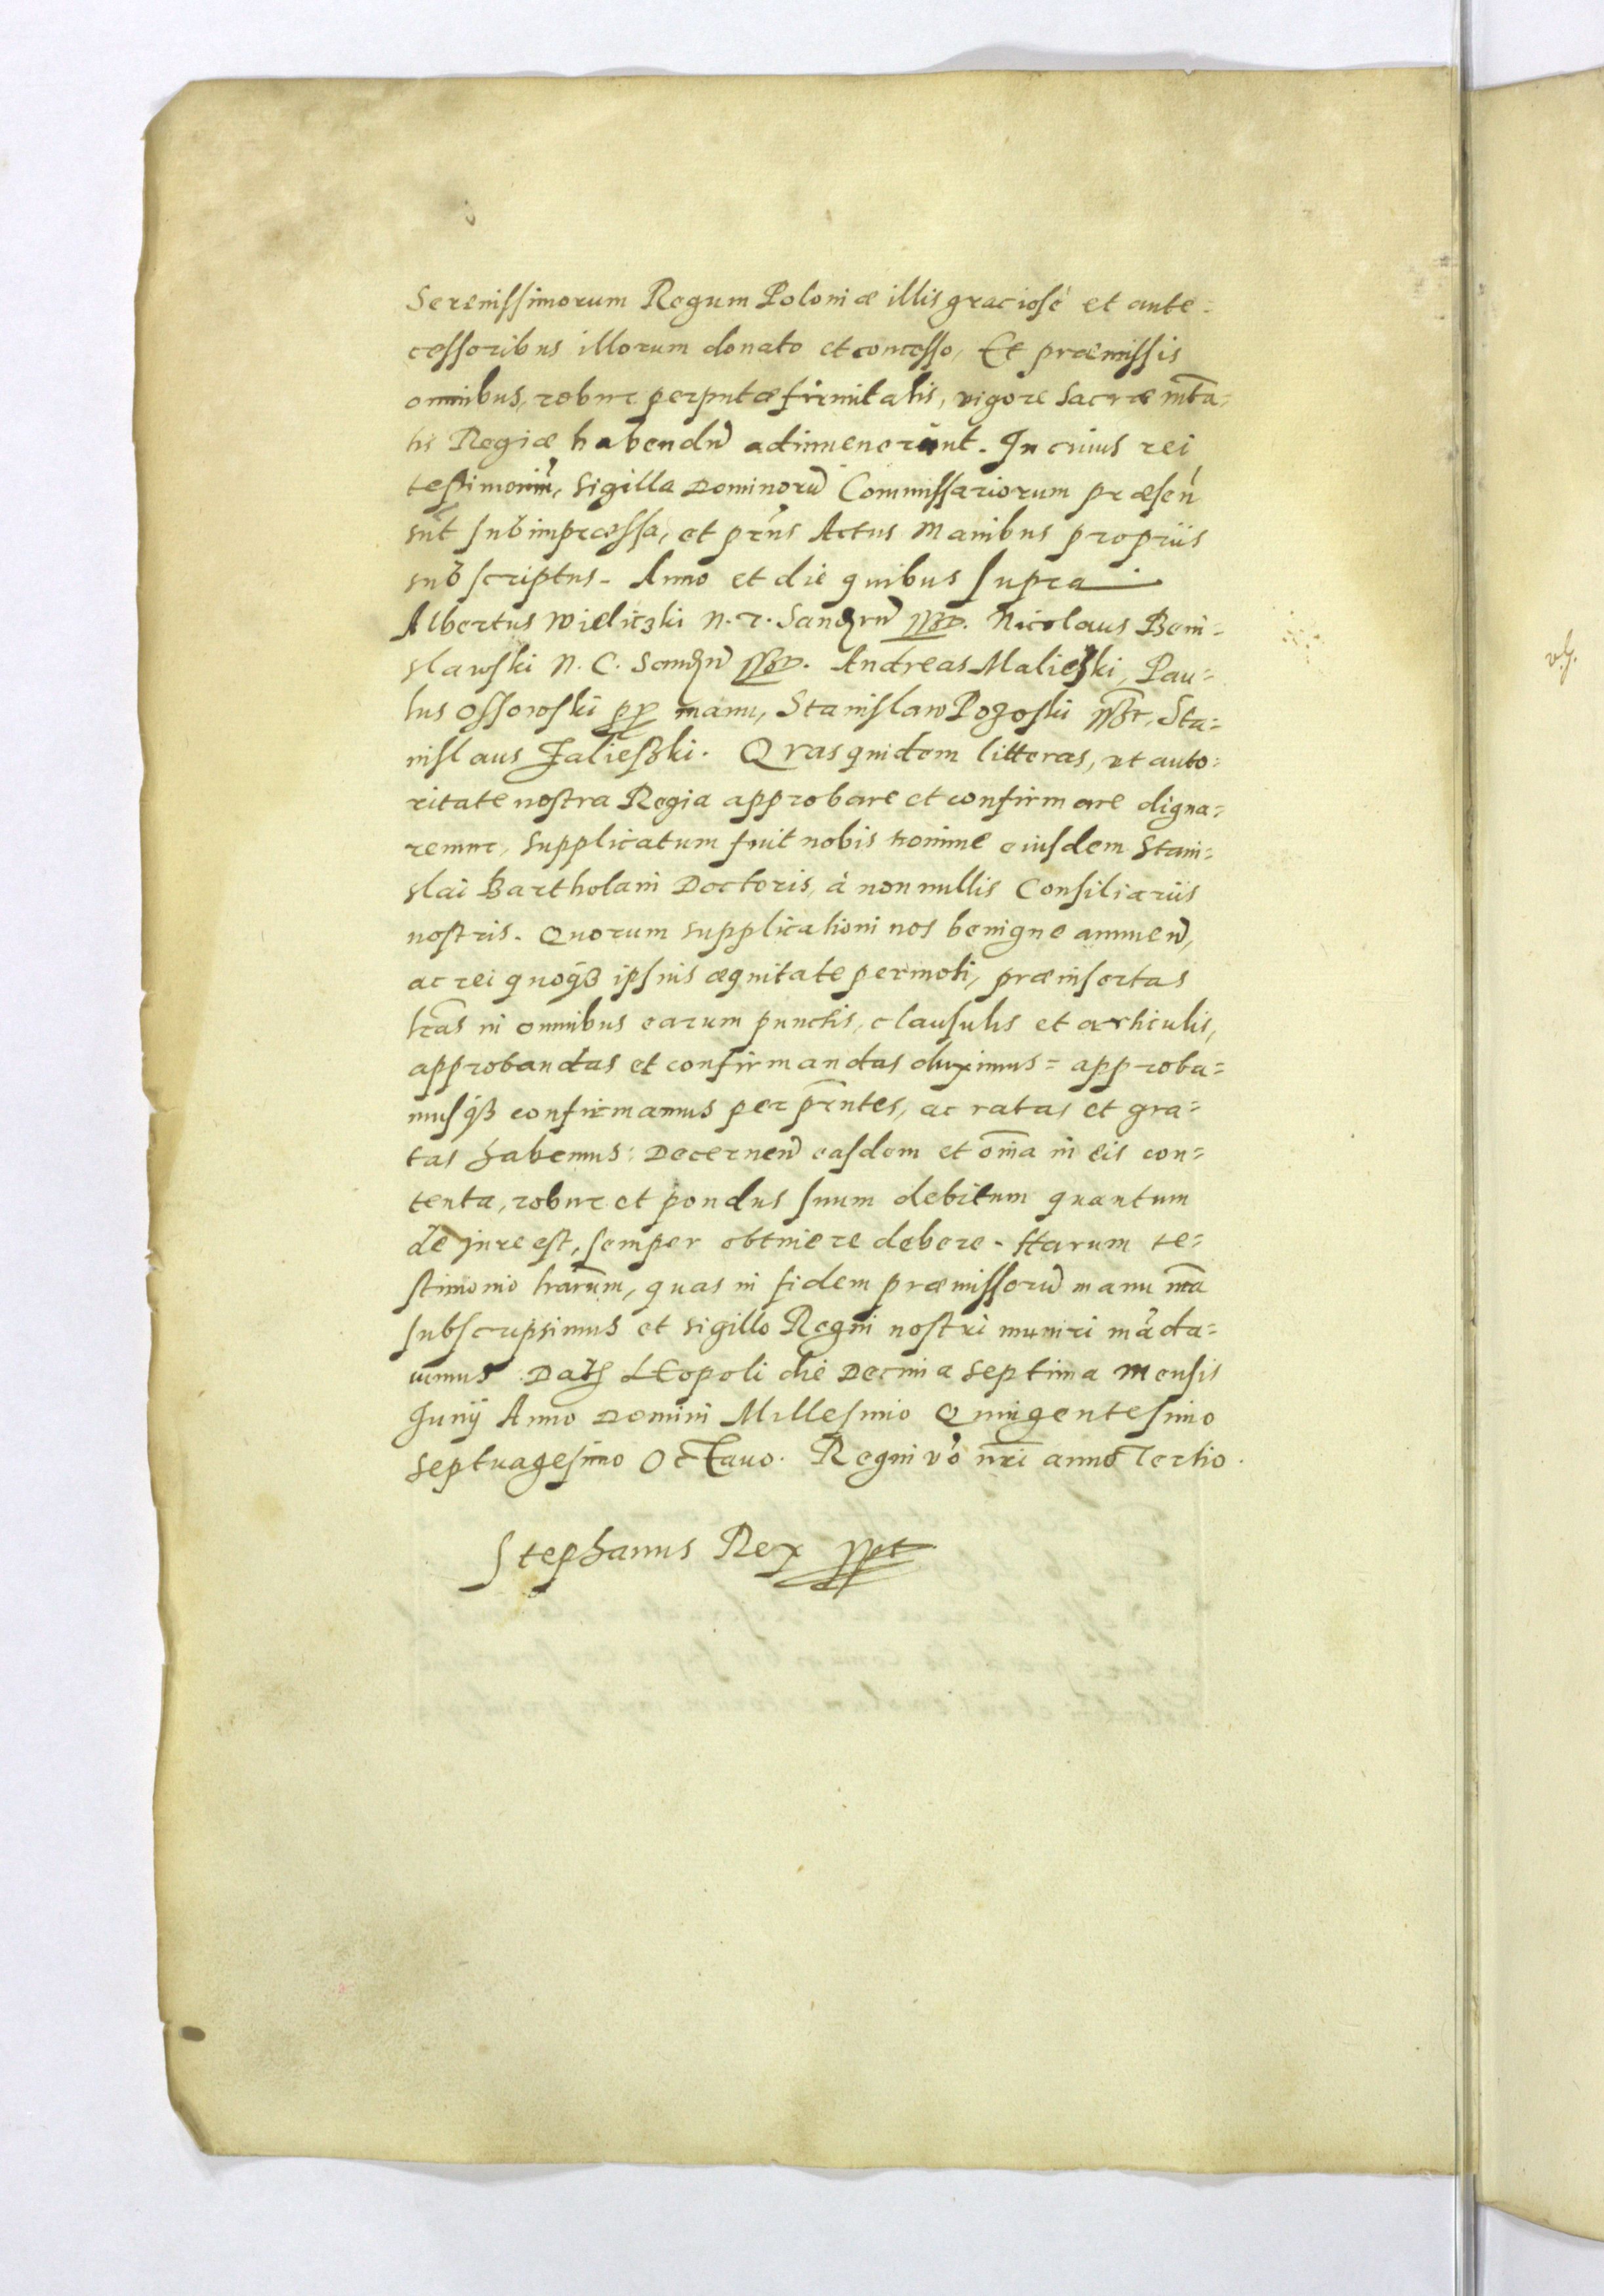 Serenissimorum Regum Poloniæ illis graciosé et ante=
cessoribus illorum donato et concesso, Et præmissis
omnibus, robur perputæ firmitatis, vigore Sacræ mta=
tis Regiæ habendũ adinuenerunt. In cuius rei
testimoniũ, sigilla Dominorũ Commissariorum præseń
sũt subimpressa, et prñs Actus Manibus proprijs
subscriptus. Anno et die quibus supra
Albertus Wieliczki N. T. Nicolaus Beni=
slawski N. C. Andreas Malieski, Pau=
lus Ossowski pp manu, Stanislaw Pogoski Sta=
nislaus Jalieszki. Quas quidem litteras, ut auto=
ritate nostra Regia approbare et confirmare digna=
remur, supplicatum fuit nobis nomine eiusdem Stani=
slai Bartholani Doctoris, à nonnullis Consiliariis
nostris. Quorum supplicationi nos benigne annueñ,
ac rei quoqȝ ipsius æquitate permoti, præinsertas
lr̃as in omnibus earum punctis, clausulis et articulis,
approbandas et confirmandas duximus= approba=
musqȝ confirmamus per prñtes, ac ratas et gra=
tas habemus: Decerneñ easdem et om̃ia in eis con=
tenta, robur et pondus suum debitum quantum
de jure est, semper obtinere debere. Harum te=
stimonio lr̃arum, quas in fidem præmissorũ manu nr̃a
subscripsimus et sigillo Regni nostri muniri mãda=
uimus. Datȝ LEopoli die Decima septima Mensis
Junij Anno Domini Millesimo Quingentesimo
septuagesimo Octauo. Regni vo nr̃i anno Tertio.
Stephanus Rex